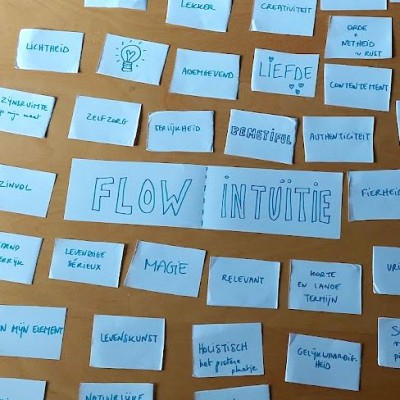 LEKKER
CREATIVITEIT
ORDE
+
NETHEID
~ RUST
LICHTHEID
ADEMGEVEND
LIEFDE
CONTENTEMENT
ZIJNSRUIMTE
ZELFZORG
EERLIJKHEID
BEMEtiFUL
AUTHENTICITEIT
ZINVOL
FLOW
INTUÏTIE
FIERHEID
LEVENDIGE
SÉRIEUX
MAGIE
RELEVANT
KORTE
EN LANGE
TERMIJN
MIJN ELEMENT
LEVENSKUNST
HOLISTISCH
het grotere
plaatje
GELIJKWAARDIG-
HEID
NATUURLIJKE